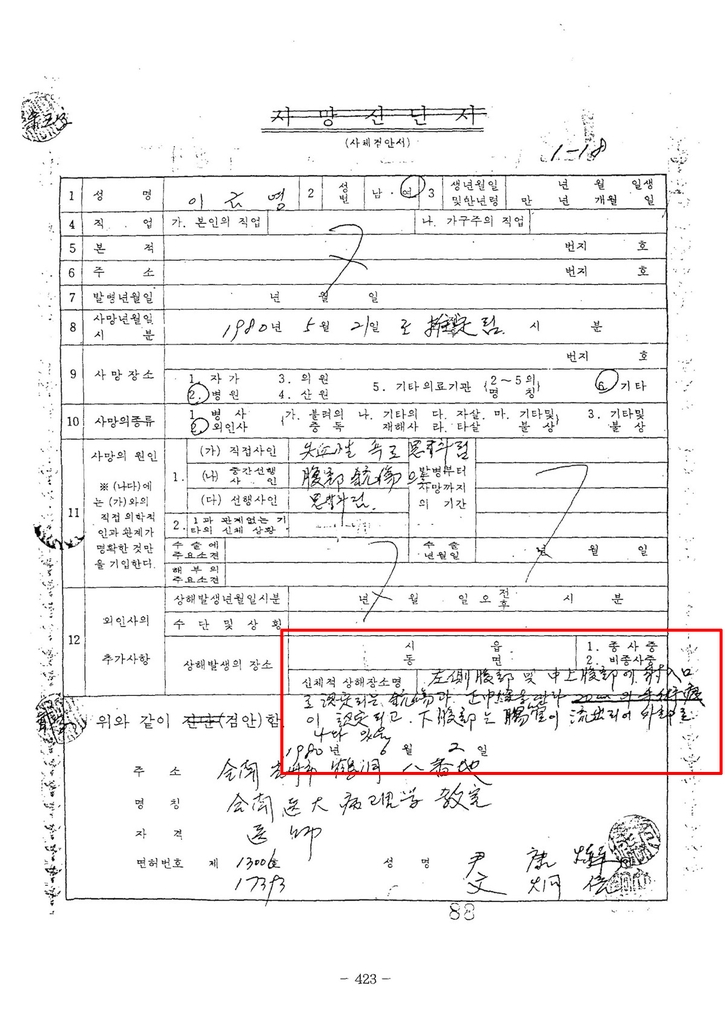 사망진단서
(사체검안서)
1-18
1 성명 이 근 영 2 성별 남·여 3 생년월일 및만년령 년 월 일생 만 년 개월 일
4 직업 가. 본인의 직업 나. 가구주의 직업
5 본적 번지 호
6 주소 번지 호
7 발병년월일 년 월 일
8 사망년월일시분 1980년 5월 21일로 推定됨. 시 분
번지 호
9 사망장소 1. 자가 3. 의원 5. 기타의료기관 (2~5의 명칭) 6. 기타
2. 병원 4. 산원
10 사망의종류 1. 병사 가. 불려의 나. 기타의 다. 자살. 마. 기타및 3. 기타및
2. 외인사 중독 재해사 라. 타살 불상 불상
사망의 원인
11 ※ (나다)에는 (가)와의 직접 의학적 인과 관계가 명확한 것만을 기입한다.
1. (가) 직접사인
(나) 중간선행사인 腹部 銃傷으로
(다) 선행사인
발병부터 사망까지의 기간
2. 1과 관계없는 기타의 신체 상황
수술에 주요소견 수술년월일 년 월 일
해부의 주요소견
12 외인사의 추가사항
상해발생년월일시분 년 월 일 오전후 시 분
수단 및 상황
상해발생의 장소 시 읍 동 면 1. 종사중 2. 비종사중
신체적 상해장소명 左側腹部 및 中上腹部에 射入口
로 認定되는 銃傷과 正中線을 20cm의 手術痕
이 認定되고. 下腹部는 腸管이 流出되어 外部로
나와 있음
위와 같이 진단(검안)함
1980년 6월 2일
주소 全南 光州市 鶴洞 八番地
명칭 全南医大 病理学 敎室
자격 医師
면허번호 제 13006호 성명 尹
17393 文 炯
88
- 423 -